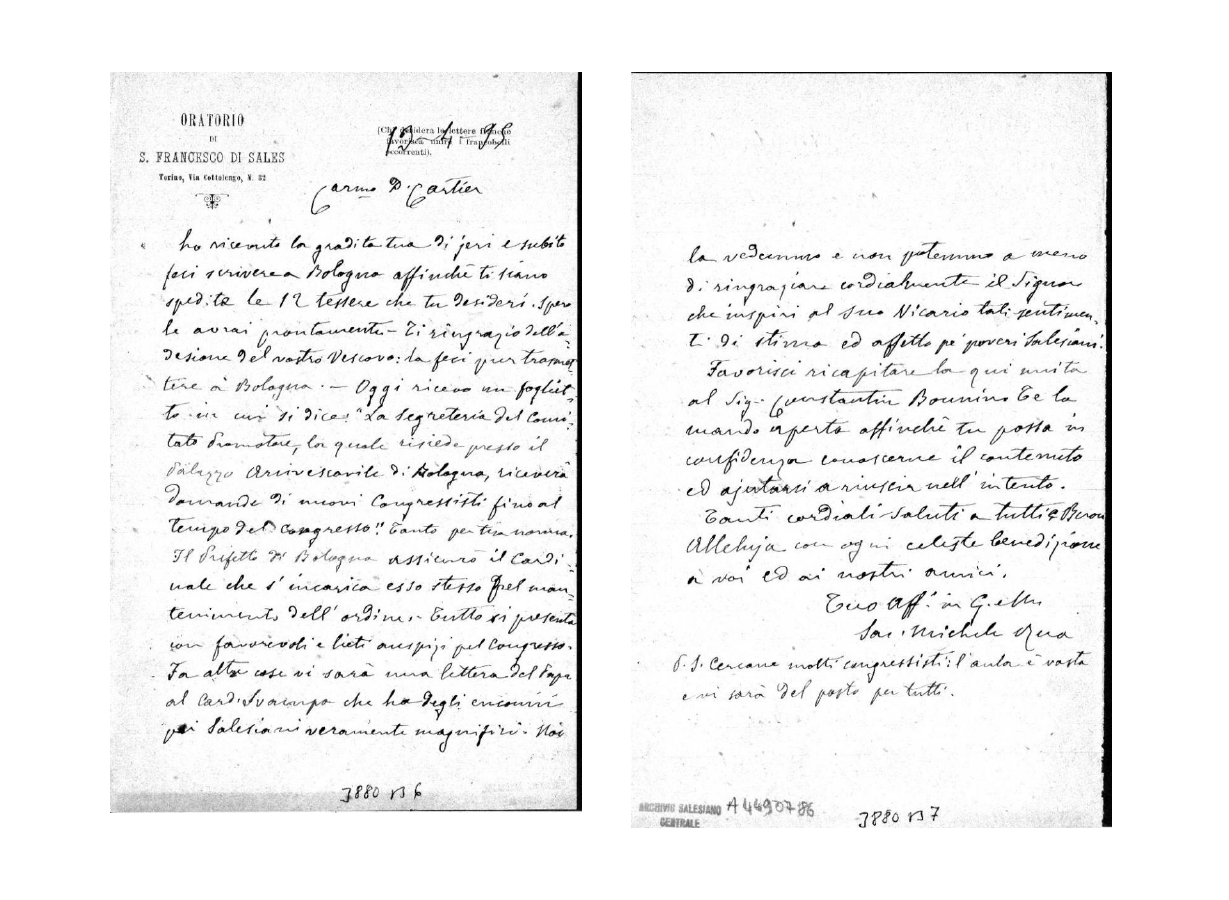 ORATORIO
DI
S. FRANCESCO DI SALES
Torino, Via Cottolengo, N. 32
(Chi desidera le lettere franche
favorisca unire i francobolli
occorrenti).
12-4-95
Carmo D. Cartier
ho ricevuto la gradita tua di jeri e subito
feci scrivere a Bologna affinchè ti siano
spedite le 12 tessere che tu desideri. Spero
le avrai prontamente - Ti ringrazio dell'a-
desione del vostro Vescovo: la feci pur trasmet
tere a Bologna. - Oggi ricevo un fogliet-
to in cui si dice: "La Segreteria del Comi-
tato Promotore, la quale risiede presso il
Palazzo Arcivescovile di Bologna, riceverà
domande di nuovi Congressisti fino al
tempo del Congresso". Tanto per tua norma.
Il Prefetto di Bologna assicurò il Cardi-
nale che s'incarica esso stesso del man-
tenimento dell'ordine. - Tutto si presenta
con favorevoli e lieti auspizi pel Congresso.
Fa altre cose vi sarà una lettera del Papa
al Card. Svampa che ha degli encomii
pei Salesiani veramente magnifici. Noi
3880 B 6
la vedemmo e non potemmo a meno
di ringraziare cordialmente il Signore
che inspiri al suo Vicario tali sentimen-
ti di stima ed affetto pe' poveri Salesiani.
Favorisci ricapitare la qui unita
al Sig. Constantin Bounin. Te la
mando aperta affinchè tu possa in
confidenza conoscerne il contenuto
ed ajutarci a riuscir nell'intento.
Tanti cordiali saluti a tutti e Buon
Alleluja con ogni celeste benedizione
a voi ed ai nostri amici.
Tuo Aff. in G. e M.
Sac. Michele Rua
P.S. Cercane molti congressisti: l'aula è vasta
e vi sarà del posto per tutti.
ARCHIVIO SALESIANO
CENTRALE
A 4490786
3880 B 7